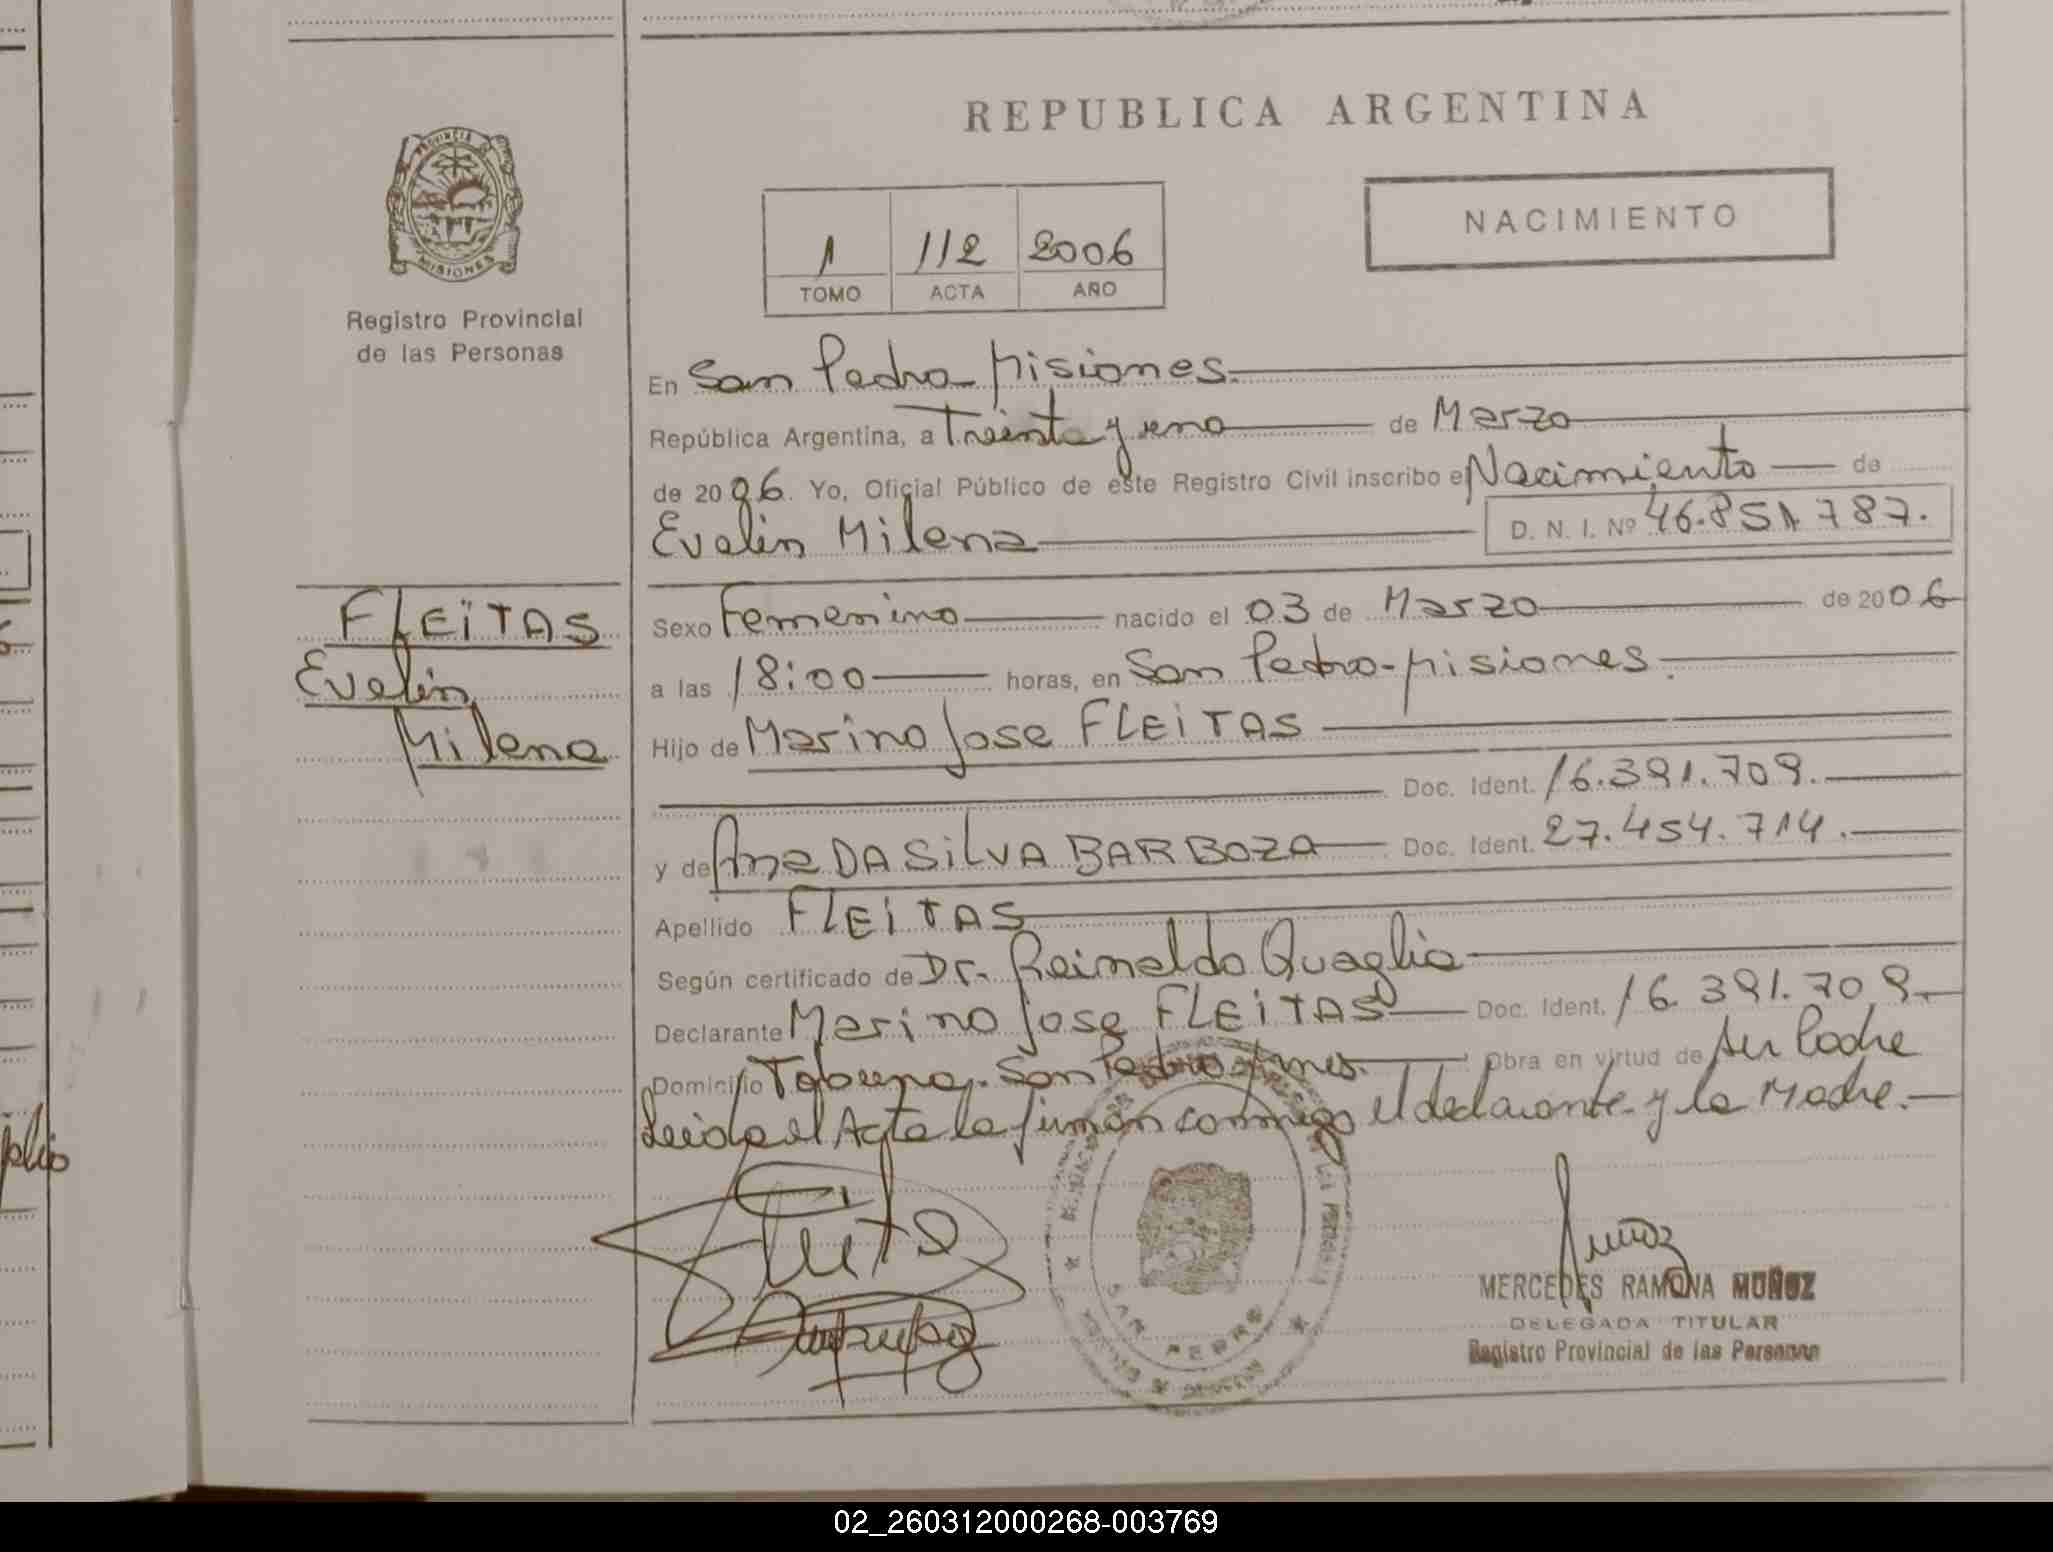 REPUBLICA ARGENTINA
NACIMIENTO
1 112 2006
TOMO ACTA AÑO
PROVINCIA DE MISIONES
Registro Provincial
de las Personas
En San Pedro Misiones.
República Argentina, a Treinta y uno de Marzo
de 2006. Yo, Oficial Público de este Registro Civil inscribo el Nacimiento de
Evelin Milena D. N. I. Nº 46.851.787.
FLEiTAS
Evelin
Milena
Sexo Femenino nacido el 03 de Marzo de 2006
a las 18:00 horas, en San Pedro-Misiones.
Hijo de Marino Jose FLEiTAS
Doc. Ident. 16.391.709.
y de Ana DA SiLVA BARBOZA Doc. Ident. 27.454.714.
Apellido FLEiTAS
Según certificado de Dr. Reinaldo Quaglia
Declarante Marino Jose FLEiTAS Doc. Ident. 16.391.709.
Domicilio Tobuna. San Pedro Mnes. Obra en virtud de su Padre
Leida el Acta la firman conmigo el declarante y la Madre.
SAN PEDRO
MERCEDES RAMONA MUÑOZ
DELEGADA TITULAR
Registro Provincial de las Personas
02_260312000268-003769